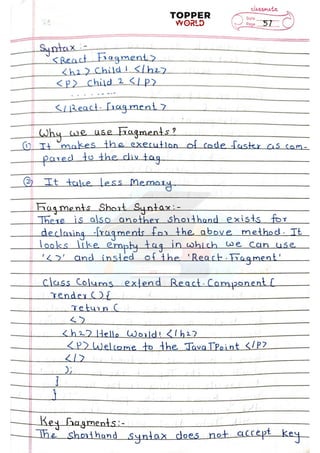 classmate
TOPPER
WORLD
Date
Page 57
Syntax :-
<React Fragment>
<h2> Child 1 </h2>
<p> child 2 </p>
. . . . . . . .
</React. fragment>
Why we use Fragments?
① It makes the execution of code faster as com-
pared to the div tag.
② It take less Memory.
Fragments Short Syntax:-
There is also another shorthand exists for
declaring fragments for the above method. It
looks like empty tag in which we can use
'<>' and insted of the 'React.Fragment'
class Colums extend React.Component {
render () {
return (
<>
<h2> Hello World! </h2>
<P> Welcome to the JavaTPoint </P>
</>
);
}
}
Key fragments:-
The shorthand syntax does not accept key